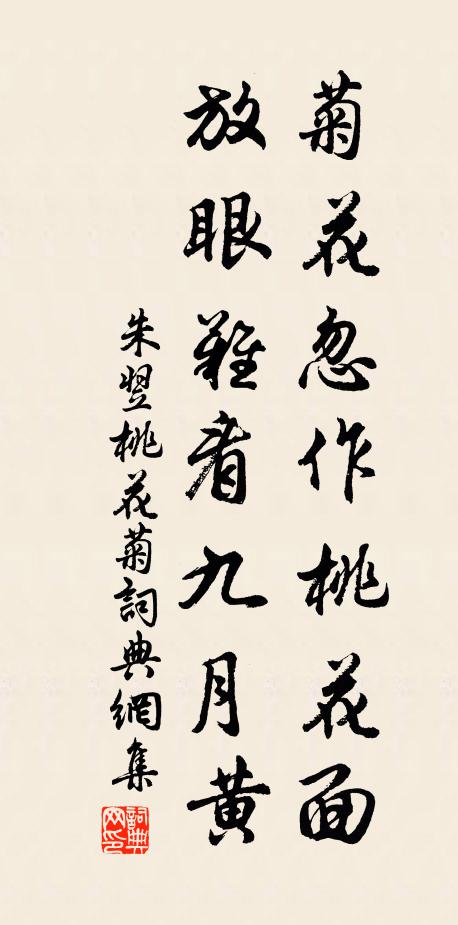 菊花忽作桃花面
放眼難看九月黃
朱翌桃花菊詞典網集
詞典網印